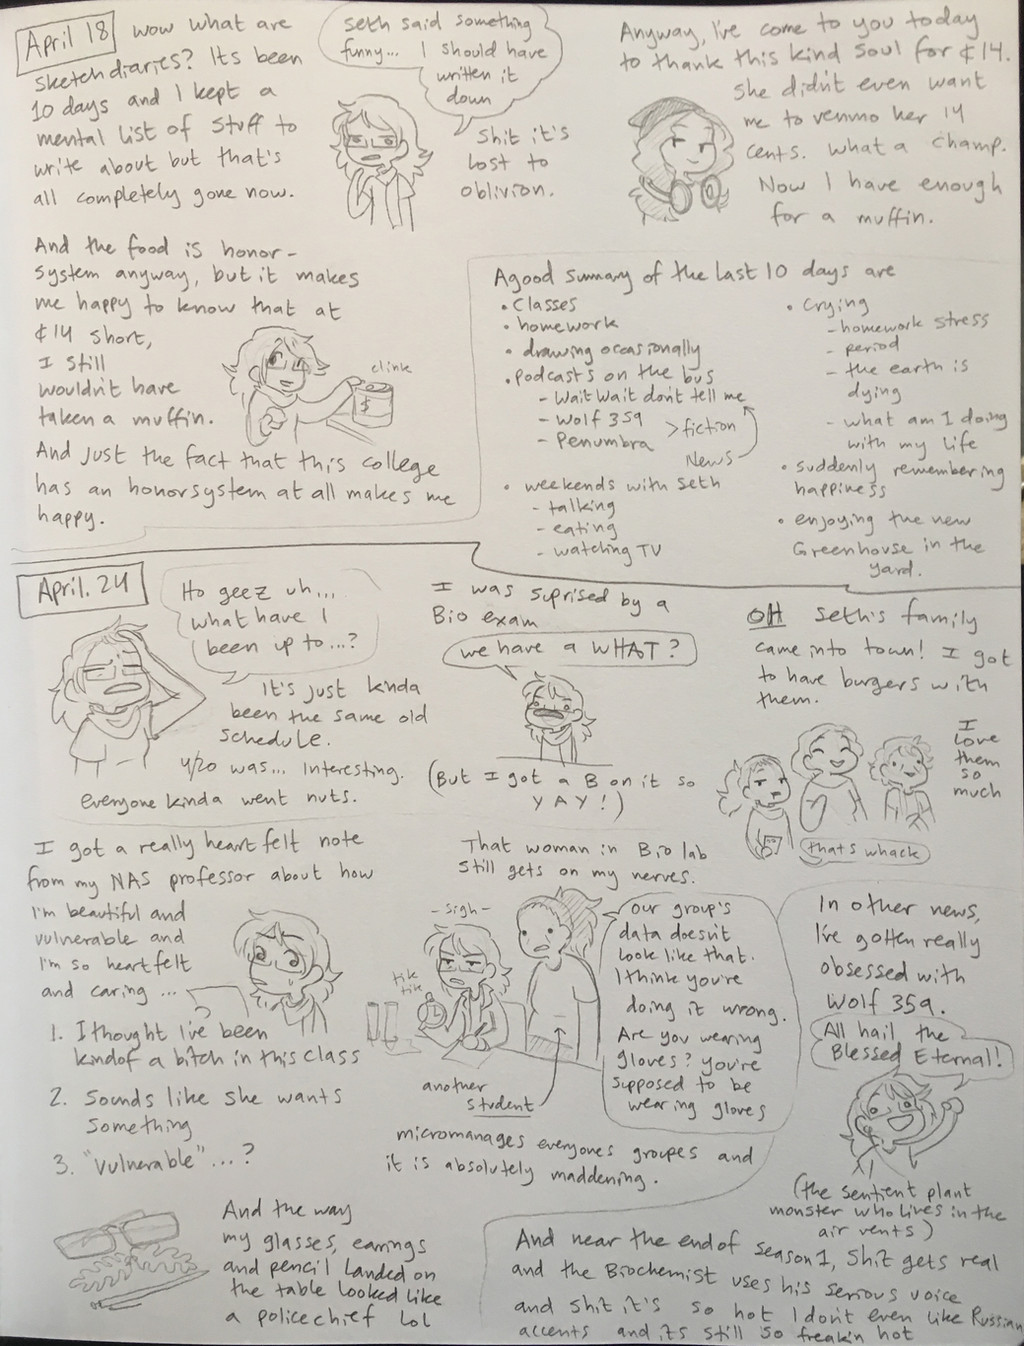 April 18
wow what are
sketchdiaries? Its been
10 days and I kept a
mental list of stuff to
write about but that's
all completely gone now.
Seth said something
funny... I should have
written it
down
Shit it's
lost to
oblivion.
Anyway, I've come to you today
to thank this kind soul for ¢14.
She didn't even want
me to venmo her 14
cents. what a champ.
Now I have enough
for a muffin.
And the food is honor-
system anyway, but it makes
me happy to know that at
¢14 short,
I still
wouldn't have
taken a muffin.
clink
$
And just the fact that this college
has an honorsystem at all makes me
happy.
A good summary of the last 10 days are
• Classes
• homework
• drawing occasionally
• Podcasts on the bus
- Wait Wait don't tell me
- Wolf 359
- Penumbra
>fiction
News
• weekends with Seth
- talking
- eating
- watching TV
• Crying
- homework stress
- period
- the earth is
dying
- what am I doing
with my life
• suddenly remembering
happiness
• enjoying the new
Greenhouse in the
yard.
April. 24
Ho geez uh...
what have I
been up to...?
It's just kinda
been the same old
schedule.
4/20 was... interesting.
everyone kinda went nuts.
I was suprised by a
Bio exam
we have a WHAT?
(But I got a B on it so
YAY!)
OH Seth's family
came into town! I got
to have burgers with
them.
I
love
them
so
much
thats whack
I got a really heartfelt note
from my NAS professor about how
I'm beautiful and
vulnerable and
I'm so heartfelt
and caring...
1. I thought I've been
kindof a bitch in this class
2. Sounds like she wants
something
3. "Vulnerable"...?
That woman in Bio lab
still gets on my nerves.
- sigh -
tik
tik
our group's
data doesn't
look like that.
I think you're
doing it wrong.
Are you wearing
gloves? you're
supposed to be
wearing gloves
another
student
micromanages everyones groupes and
it is absolutely maddening.
In other news,
I've gotten really
obsessed with
Wolf 359.
All hail the
Blessed Eternal!
(the sentient plant
monster who lives in the
air vents)
And the way
my glasses, earings
and pencil landed on
the table looked like
a police chief lol
And near the end of season 1, Shit gets real
and the Biochemist uses his serious voice
and shit it's so hot I don't even like Russian
accents and its still so freakn hot